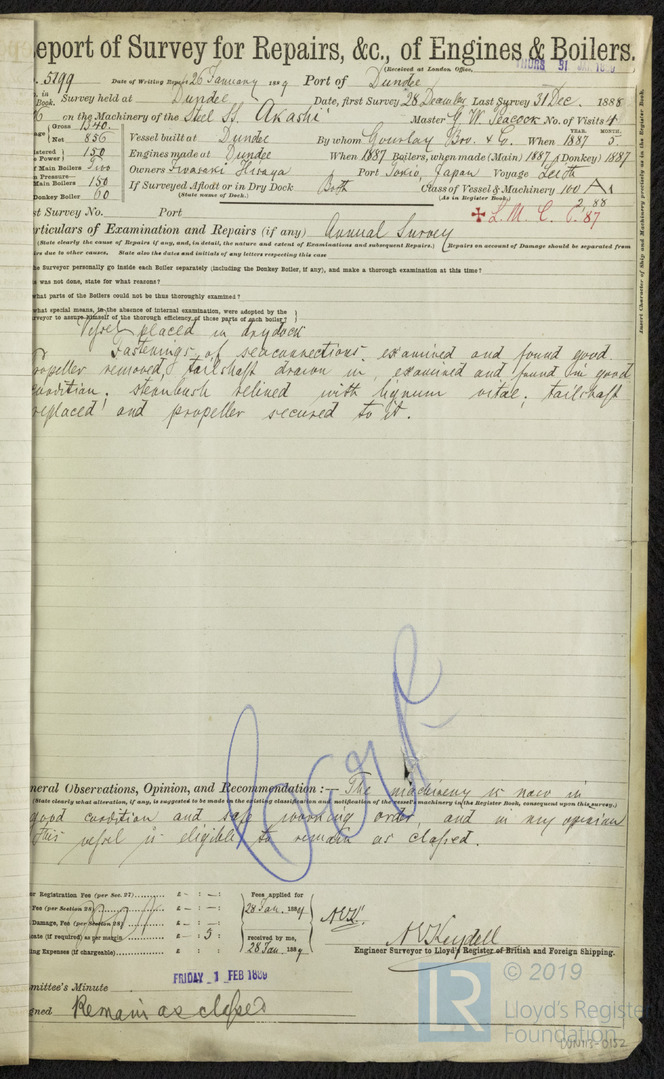 eport of Survey for Repairs, &c., of Engines & Boilers.
(Received at London Office,
THURS 31
5199 Date of Writing Report 26 January 1889 Port of Dundee
Book. Survey held at Dundee Date, first Survey 28 December Last Survey 31 Dec. 1888
on the Machinery of the Steel SS. Akashi Master G. W. Peacock No. of Visits 4
Gross 1340. YEAR. MONTH.
Net 856 Vessel built at Dundee By whom Gourlay Bro. & Co. When 1887 5
150 Engines made at Dundee When 1887 Boilers, when made (Main) 1887 (Donkey) 1887
Main Boilers Two Owners Iwasaki Hisaya Port Tokio, Japan Voyage Leith
Main Boilers 150 If Surveyed Afloat or in Dry Dock Both Class of Vessel & Machinery 100 A1
Donkey Boiler 60 (State name of Dock.) (As in Register Book.) 2,88
st Survey No. Port L. M. C. 6.'87
rticulars of Examination and Repairs (if any) Annual Survey
(State clearly the cause of Repairs if any, and, in detail, the nature and extent of Examinations and subsequent Repairs.) Repairs on account of Damage should be separated from
irs due to other causes. State also the dates and initials of any letters respecting this case
he Surveyor personally go inside each Boiler separately (including the Donkey Boiler, if any), and make a thorough examination at this time?
was not done, state for what reasons?
hat parts of the Boilers could not be thus thoroughly examined?
what special means, in the absence of internal examination, were adopted by the
rveyor to assure himself of the thorough efficiency of those parts of each boiler?
Vessel placed in drydock
Fastenings of seaconnections examined and found good.
Propeller removed, tailshaft drawn in, examined and found in good
condition; sternbush relined with lignum vitae; tailshaft
replaced and propeller secured to it.
neral Observations, Opinion, and Recommendation:— The machinery is now in
(State clearly what alteration, if any, is suggested to be made in the existing classification and notification of the vessel's machinery in the Register Book, consequent upon this survey.)
good condition and safe working order, and in my opinion
this vessel is eligible to remain as classed.
er Registration Fee (per Sec. 27) £ - : - : Fees applied for
Fee (per Section 28) £ - : - : 28 Jan. 1889
Damage, Fee (per Section 28) £ - : - :
cate (if required) as per margin £ - : 5 : received by me,
ing Expenses (if chargeable) £ : : 28 Jan. 1889
A V Keydell
Engineer Surveyor to Lloyd's Register of British and Foreign Shipping.
FRIDAY 1 FEB 1889
mmittee's Minute
gned Remain as classed
Insert Character of Ship and Machinery precisely as in the Register Book.
LR © 2019
Lloyd's Register
Foundation